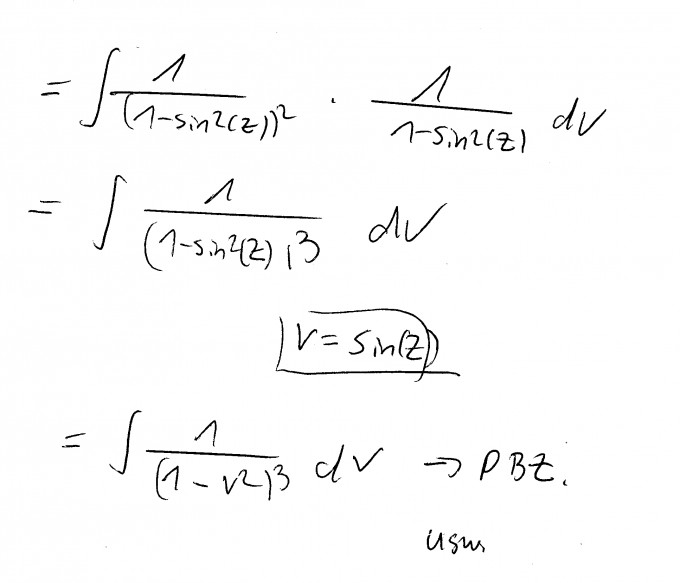 = ∫ 1/(1-sin²(z))² · 1/(1-sin²(z)) dv
= ∫ 1/(1-sin²(z))³ dv
v = sin(z)
= ∫ 1/(1-v²)³ dv → PBZ.
usw